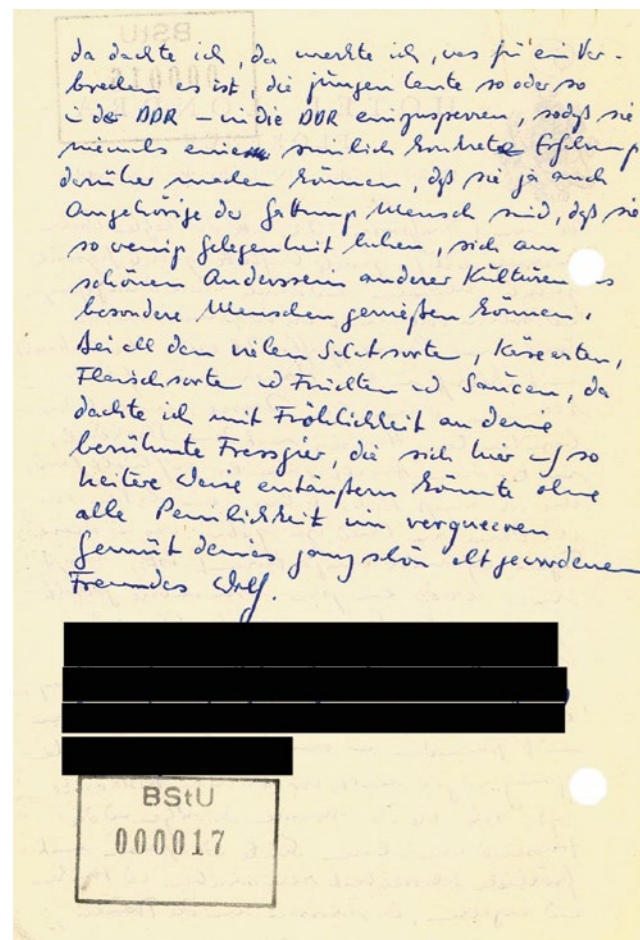 da dachte ich, da merkte ich, was für ein Ver-
brechen es ist, die jungen Leute so oder so
in der DDR – in die DDR einzusperren, sodaß sie
niemals eine sinnlich konkrete Erfahrung
darüber machen können, daß sie ja auch
Angehörige der Gattung Mensch sind, daß sie
so wenig Gelegenheit haben, sich am
schönen Anderssein anderer Kulturen
besondere Menschen genießen können.
Bei all den vielen Salatsorten, Käsearten,
Fleischsorten und Früchten und Saucen, da
dachte ich mit Fröhlichkeit an deine
berühmte Fressgier, die sich hier auf so
heitere Weise entäußern könnte ohne
alle Peinlichkeit im verqueeren
Gemüt deines ganz schön alt gewordenen
Freundes Wolf.
BStU
000017